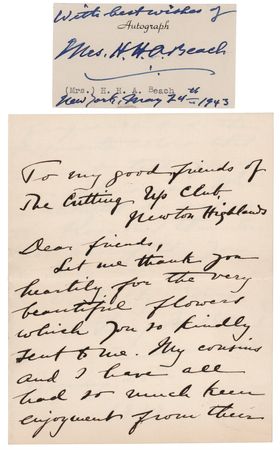 With best wishes of
Autograph
Mrs. H. H. A. Beach
(Mrs.) H. H. A. Beach
New York, May 24th 1943
To my good friends of
The Cutting Up Club,
Newton Highlands
Dear friends,
Let me thank you
heartily for the very
beautiful flowers
which you so kindly
sent to me. My cousins
and I have all
had so much keen
enjoyment from their